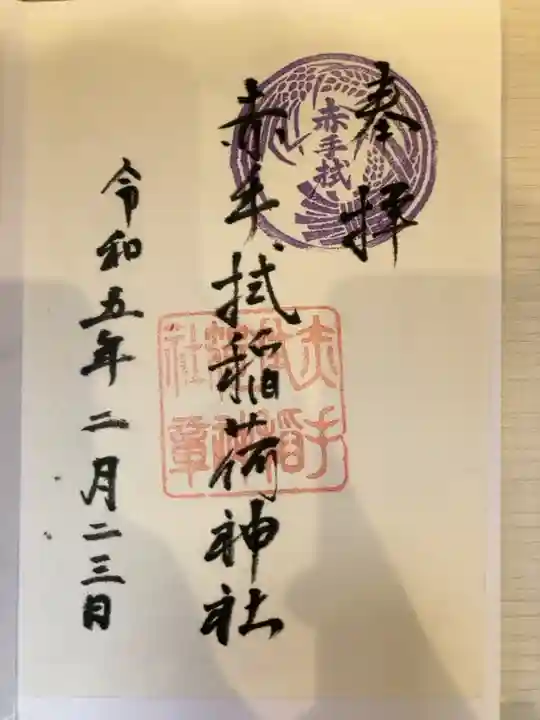 奉拝
赤手拭
赤手拭稲荷神社
赤手
拭稲
荷神
社章
令和五年二月二三日